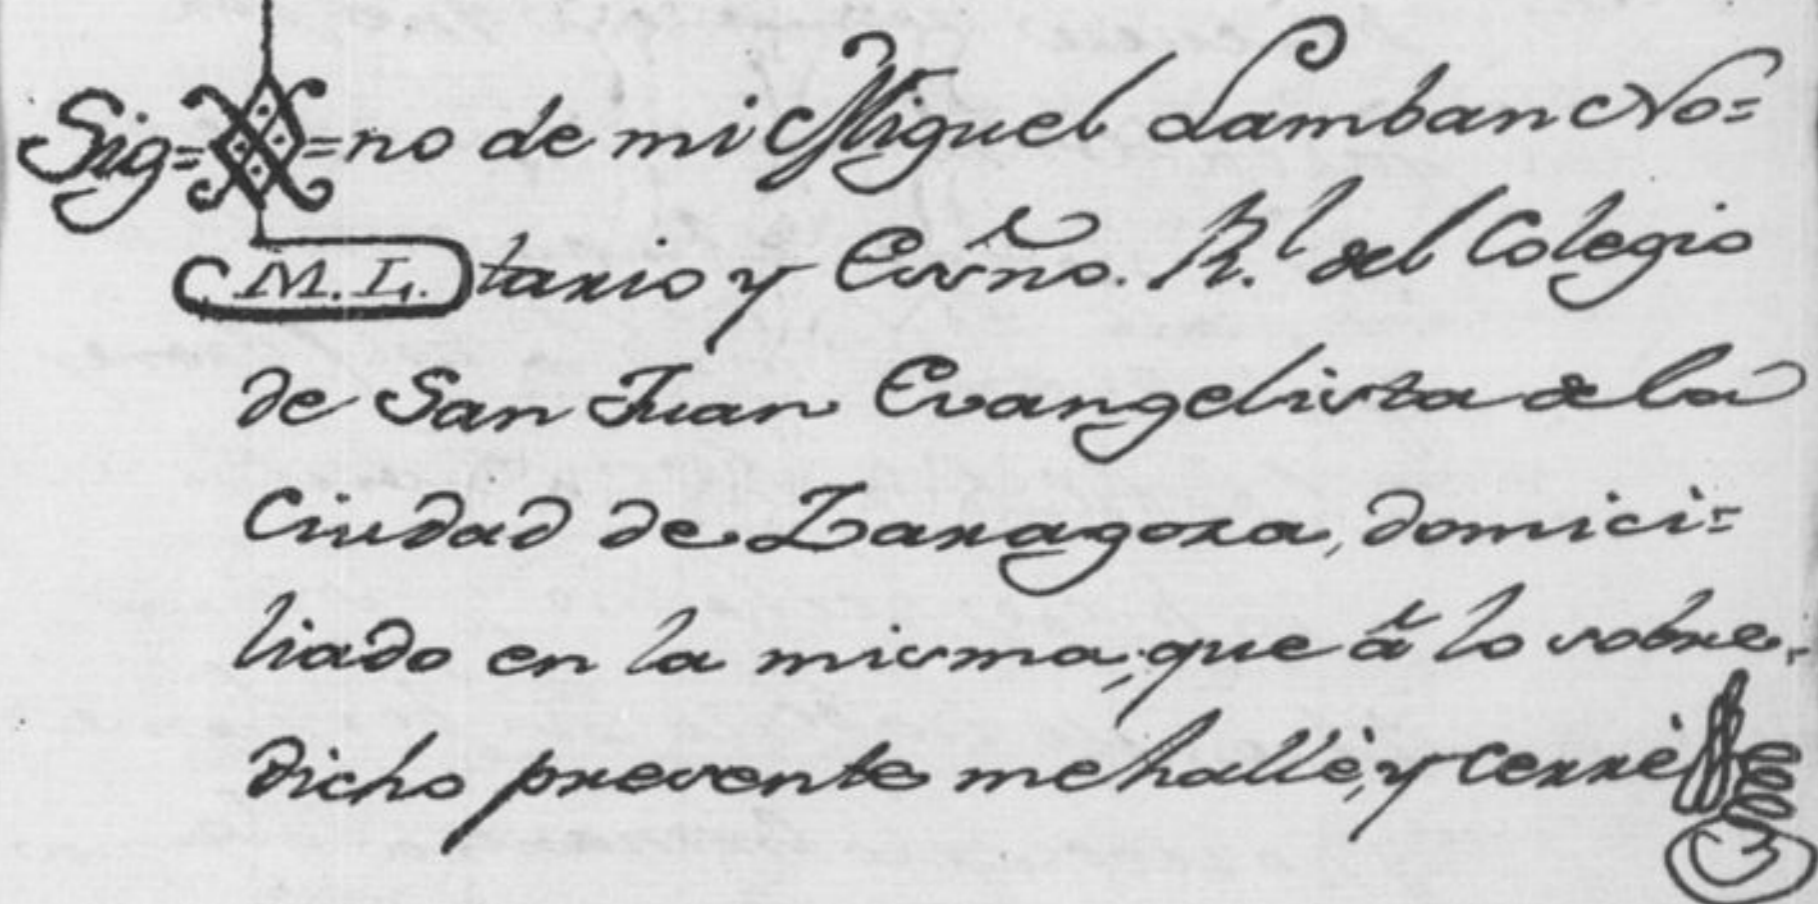 Sig= =no de mi Miguel Lamban No=
M. L. tario y Essño. R.l del Colegio
de San Juan Evangelista de la
Ciudad de Zaragoza, domici=
liado en la misma; que â lo sobre-
dicho presente me hallè, y cerrè